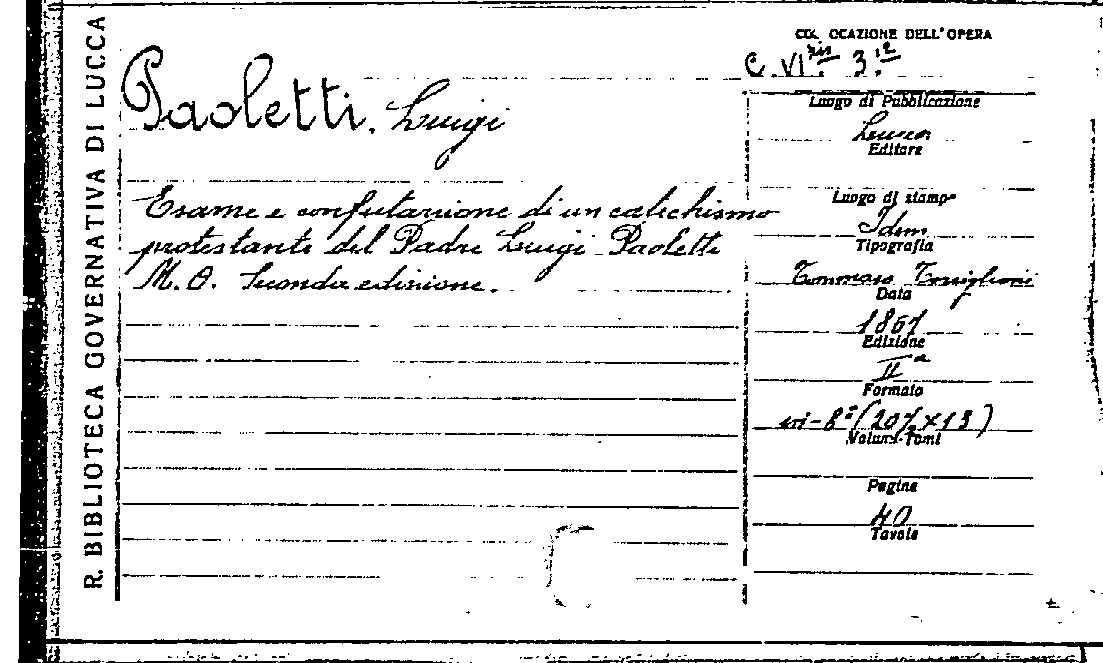 R. BIBLIOTECA GOVERNATIVA DI LUCCA
Paoletti, Luigi
Esame e confutazione di un catechismo
protestante del Padre Luigi Paoletti
M. O. Seconda edizione.
COLLOCAZIONE DELL'OPERA
C. VI 3.
Luogo di Pubblicazione
Lucca
Editore
Luogo di stampa
Idem
Tipografia
Tommaso Torcigliani
Data
1861
Edizione
IIª
Formato
in-8º (20½ x 13)
Volumi-Tomi
Pagine
40
Tavole